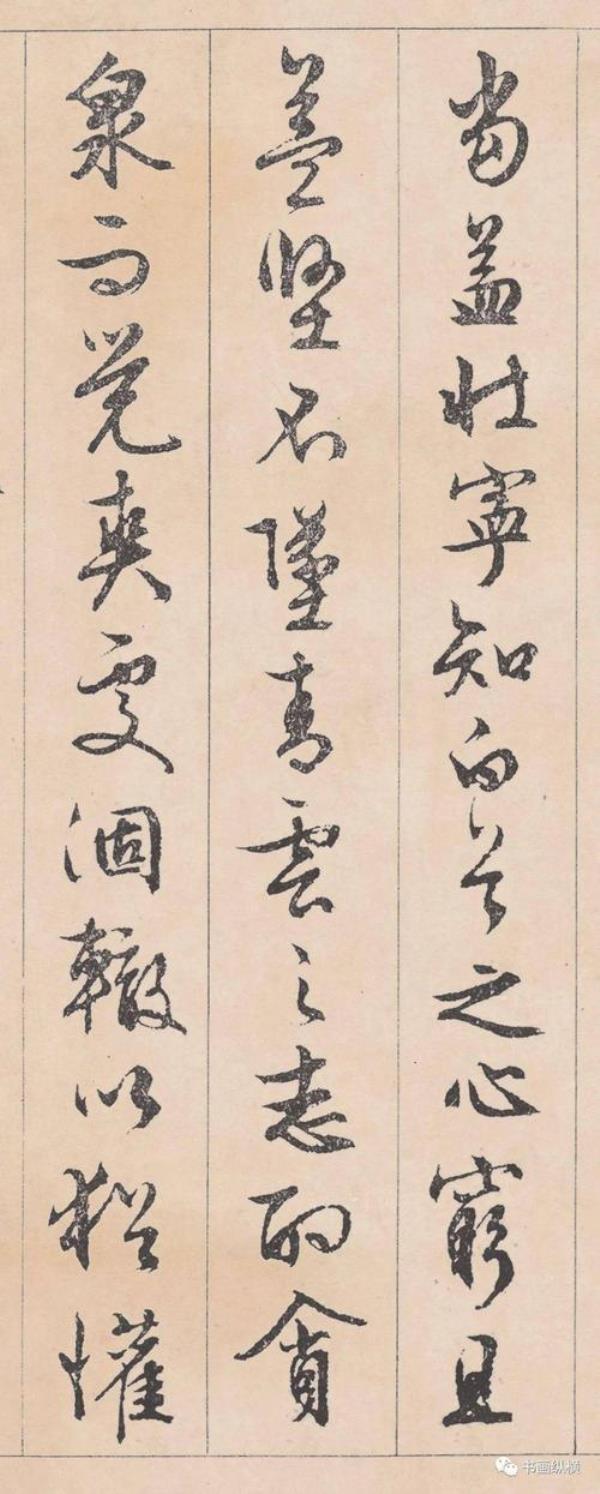 當益壯寧知白首之心窮且
益堅不墜青雲之志酌貪
泉而覺爽處涸轍以猶懽
书画纵横